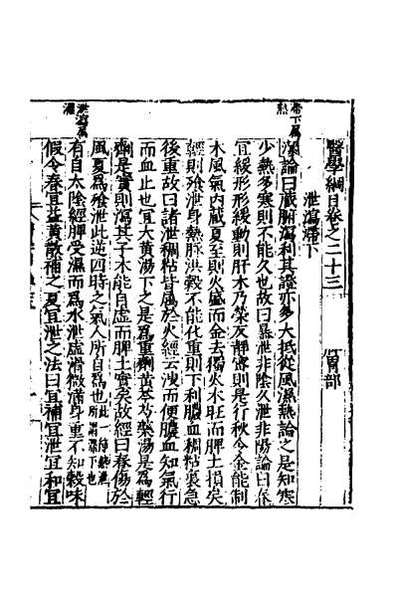 醫學綱目卷之二十三 脾胃部
泄瀉滯下
滯下屬熱
溪論曰臟腑瀉利其證亦多大抵從風濕熱論之是知寒
少熱多寒則不能久也故曰暴泄非陰久泄非陽論曰春
宜緩形形緩動則肝木乃榮反靜密則是行秋令金能制
木風氣內藏夏至則火盛而金去獨火木旺而脾土損矣
輕則飧泄身熱脉洪穀不能化重則下利膿血稠粘裏急
後重故曰諸泄稠粘皆屬於火經云溲而便膿血知氣行
而血止也宜大黃湯下之是為重劑黃芩芍藥湯是為輕
劑是實則瀉其子木能自虛而脾土實矣故經曰春傷於
風夏為飧泄此逆四時之氣人所自為也此一陣飧泄所謂滯下也
泄瀉屬濕
有自太陰經脾受濕而為水泄虛滑微滿身重不知穀味
假令春宜益黃散補之夏宜泄之法曰宜補宜泄宜和宜